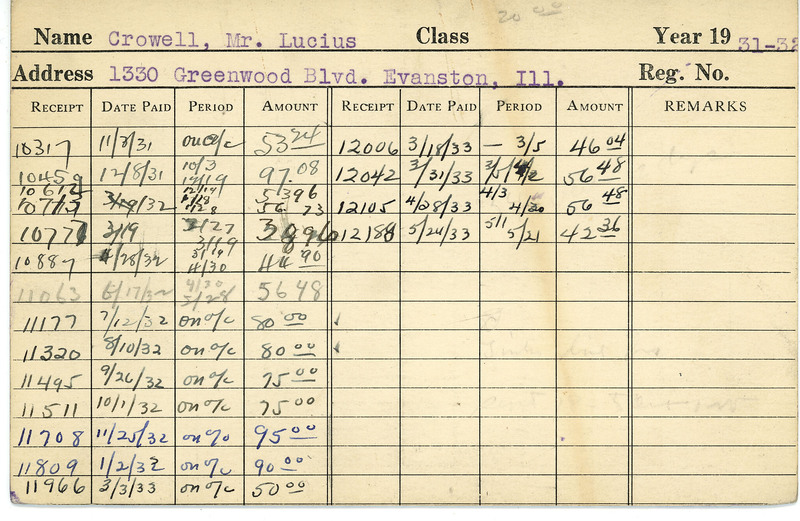 20 00
Name Crowell, Mr. Lucius Class Year 19 31-32
Address 1330 Greenwood Blvd. Evanston, Ill. Reg. No.
RECEIPT DATE PAID PERIOD AMOUNT RECEIPT DATE PAID PERIOD AMOUNT REMARKS
10317 11/3/31 on a/c 53 24 12006 3/18/33 — 3/5 46 04
10459 12/8/31 10/3 12/19 97.08 12042 3/31/33 56 48
10612 53 96
56 73 12105 4/28/33 4/3 4/30 56 48
3/9 2/27 12188 5/24/33 5/1 5/21 42 36
3/19
10887 4/28/32 3/19 4/30 44 90
11063 5/17/32 4/30 5/28 56 48
11177 7/12/32 on a/c 80 00
11320 8/10/32 on a/c 80 00
11495 9/26/32 on a/c 75 00
11511 10/1/32 on a/c 75 00
11708 11/25/32 on a/c 95 00
11809 1/2/32 on a/c 90 00
11966 3/3/33 on a/c 50 00